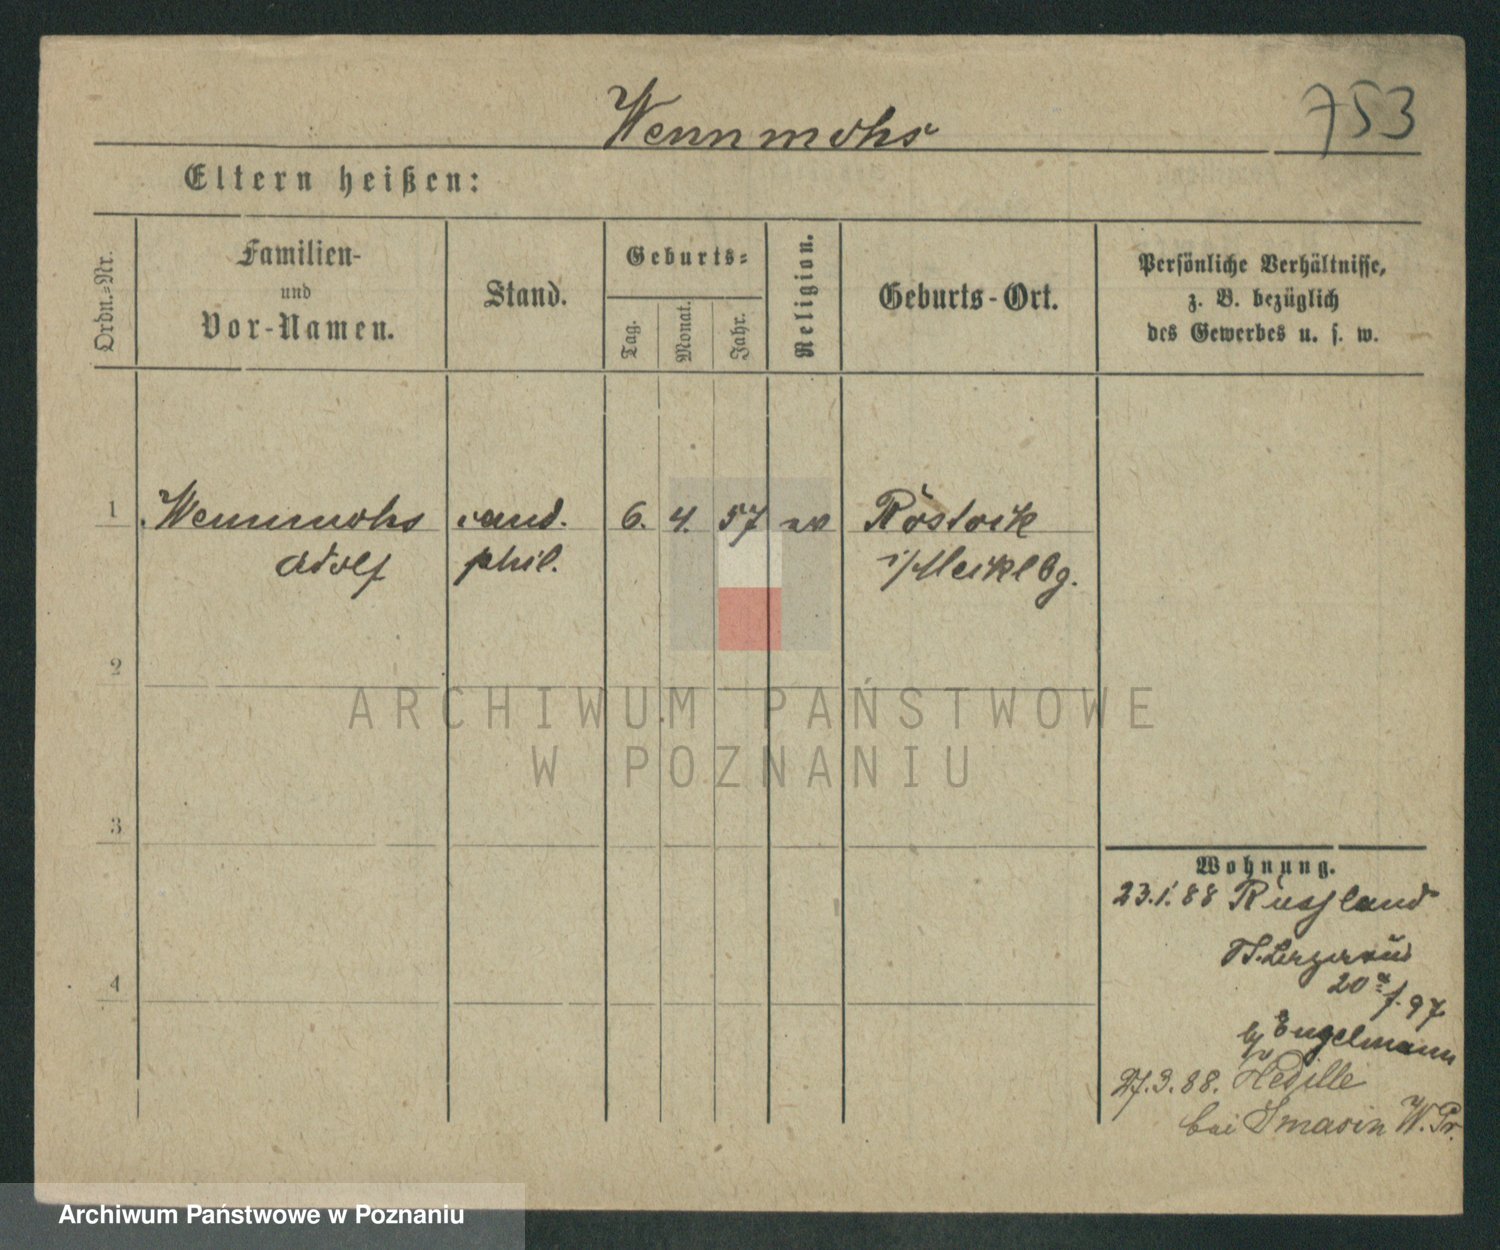 Wennmohs
753
Eltern heißen:
Ordn.-Nr.
Familien-
und
Vor-Namen.
Stand.
Geburts-
Tag.
Monat.
Jahr.
Religion.
Geburts-Ort.
Persönliche Verhältnisse,
z. B. bezüglich
des Gewerbes u. s. w.
1
Wennmohs
Adolf
cand.
phil.
6.
4.
57
ev
Rostock
i/Mecklbg.
2
3
4
ARCHIWUM PAŃSTWOWE
W POZNANIU
Wohnung.
23.1.88 Russland
St. Lazarus
97
Engelmann
27.3.88.
bei Smasin W. Pr.
Archiwum Państwowe w Poznaniu